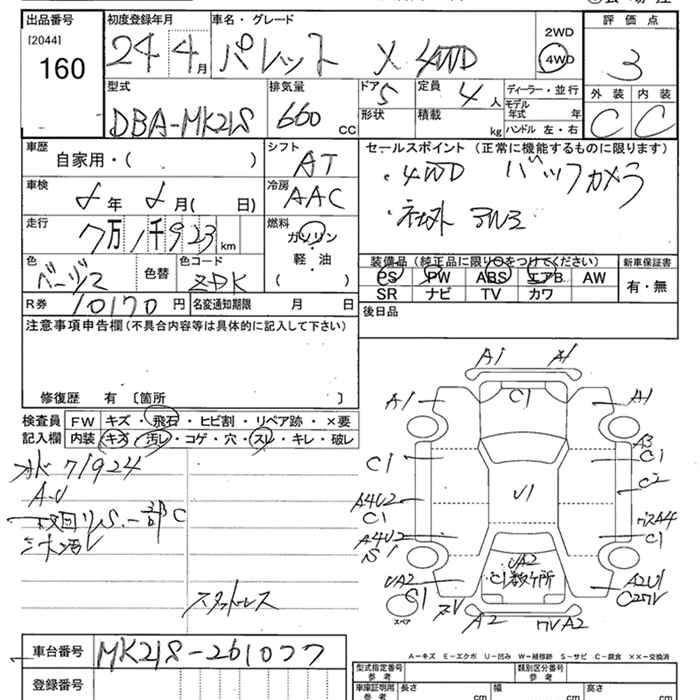 出品番号 初度登録年月 車名・グレード 評価点
[2044] 160
24 4月 パレット X 4WD
2WD
4WD
3
型式 排気量 ドア 定員 ディーラー・並行 外装 内装
DBA-MK21S 660 CC 5 4人
形状 積載 kg
モデル年式 年
ハンドル 左・右
C C
車歴 シフト セールスポイント (正常に機能するものに限ります)
自家用・( ) AT
・4WD バックカメラ
車検 年 月( 日)
冷房 AAC
・社外 アルミ
走行 7万1千923km
燃料 ガソリン・軽・油 ( )
装備品 (純正品に限り○をつけてください) 新車保証書
PS PW ABS エアB AW
SR ナビ TV カワ
有・無
色 色替 色コード
ベージュ ZDK
R券 10170円 名変通知期限 月 日
後日品
注意事項申告欄(不具合内容等は具体的に記入して下さい)
修復歴 有 〔箇所 〕
検査員記入欄
FW キズ・飛石・ヒビ割・リペア跡・×要
内装 キズ・汚レ・コゲ・穴・スレ・キレ・破レ
71924
スタットレス
A1 A1
A1 C1 A1
A3
C1 C1
C2
A4U2 U1
C1 A4
A4U2 C1
S1
UA2 UA2 A2U1
C1 C1数ケ所
スペア
A2
A-キズ E-エクボ U-凹み W-補修跡 S-サビ C-腐食 ××-交換済
車台番号 MK21S-261077
登録番号
型式指定番号 参考 類別区分番号 参考
車庫証明用 参考 長さ cm 幅 cm 高さ cm